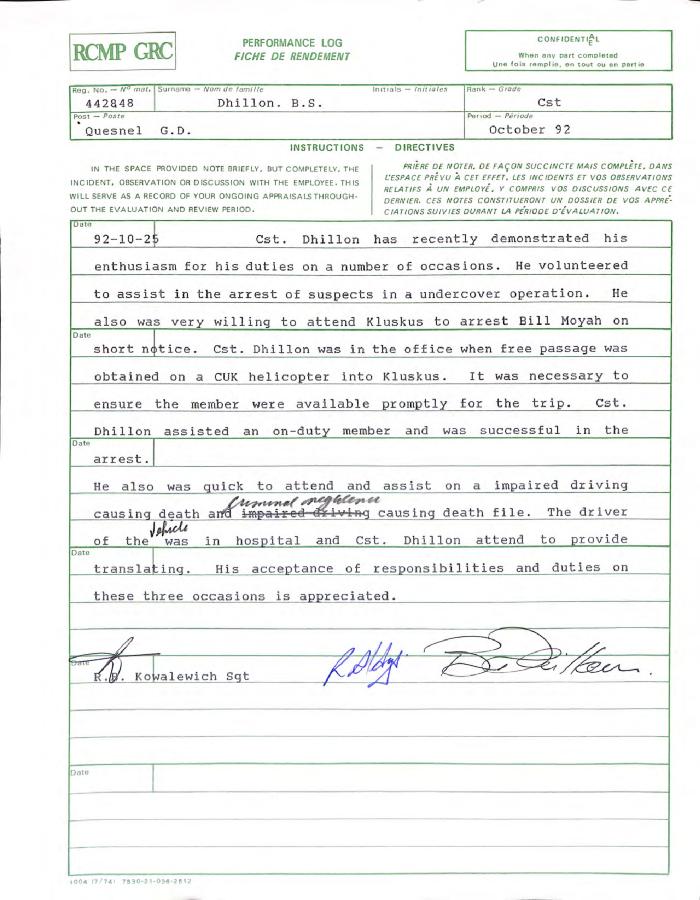 RCMP GRC
PERFORMANCE LOG
FICHE DE RENDEMENT
CONFIDENTIEL
When any part completed
Une fois remplie, en tout ou en partie
Reg. No. — Nº mat. Surname — Nom de famille Initials — Initiales Rank — Grade
442848 Dhillon. B.S. Cst
Post — Poste Period — Période
Quesnel G.D. October 92
INSTRUCTIONS — DIRECTIVES
IN THE SPACE PROVIDED NOTE BRIEFLY, BUT COMPLETELY, THE
INCIDENT, OBSERVATION OR DISCUSSION WITH THE EMPLOYEE. THIS
WILL SERVE AS A RECORD OF YOUR ONGOING APPRAISALS THROUGH-
OUT THE EVALUATION AND REVIEW PERIOD.
PRIÈRE DE NOTER, DE FAÇON SUCCINCTE MAIS COMPLÈTE, DANS
L'ESPACE PRÉVU À CET EFFET, LES INCIDENTS ET VOS OBSERVATIONS
RELATIFS À UN EMPLOYÉ, Y COMPRIS VOS DISCUSSIONS AVEC CE
DERNIER. CES NOTES CONSTITUERONT UN DOSSIER DE VOS APPRÉ-
CIATIONS SUIVIES DURANT LA PÉRIODE D'ÉVALUATION.
Date
92-10-25 Cst. Dhillon has recently demonstrated his
enthusiasm for his duties on a number of occasions. He volunteered
to assist in the arrest of suspects in a undercover operation. He
also was very willing to attend Kluskus to arrest Bill Moyah on
Date
short notice. Cst. Dhillon was in the office when free passage was
obtained on a CUK helicopter into Kluskus. It was necessary to
ensure the member were available promptly for the trip. Cst.
Dhillon assisted an on-duty member and was successful in the
Date
arrest.
He also was quick to attend and assist on a impaired driving
criminal neglience
causing death and impaired driving causing death file. The driver
vehicle
of the was in hospital and Cst. Dhillon attend to provide
Date
translating. His acceptance of responsibilities and duties on
these three occasions is appreciated.
Date
R.D. Kowalewich Sgt
Date
1004 (7/74) 7530-21-036-2812